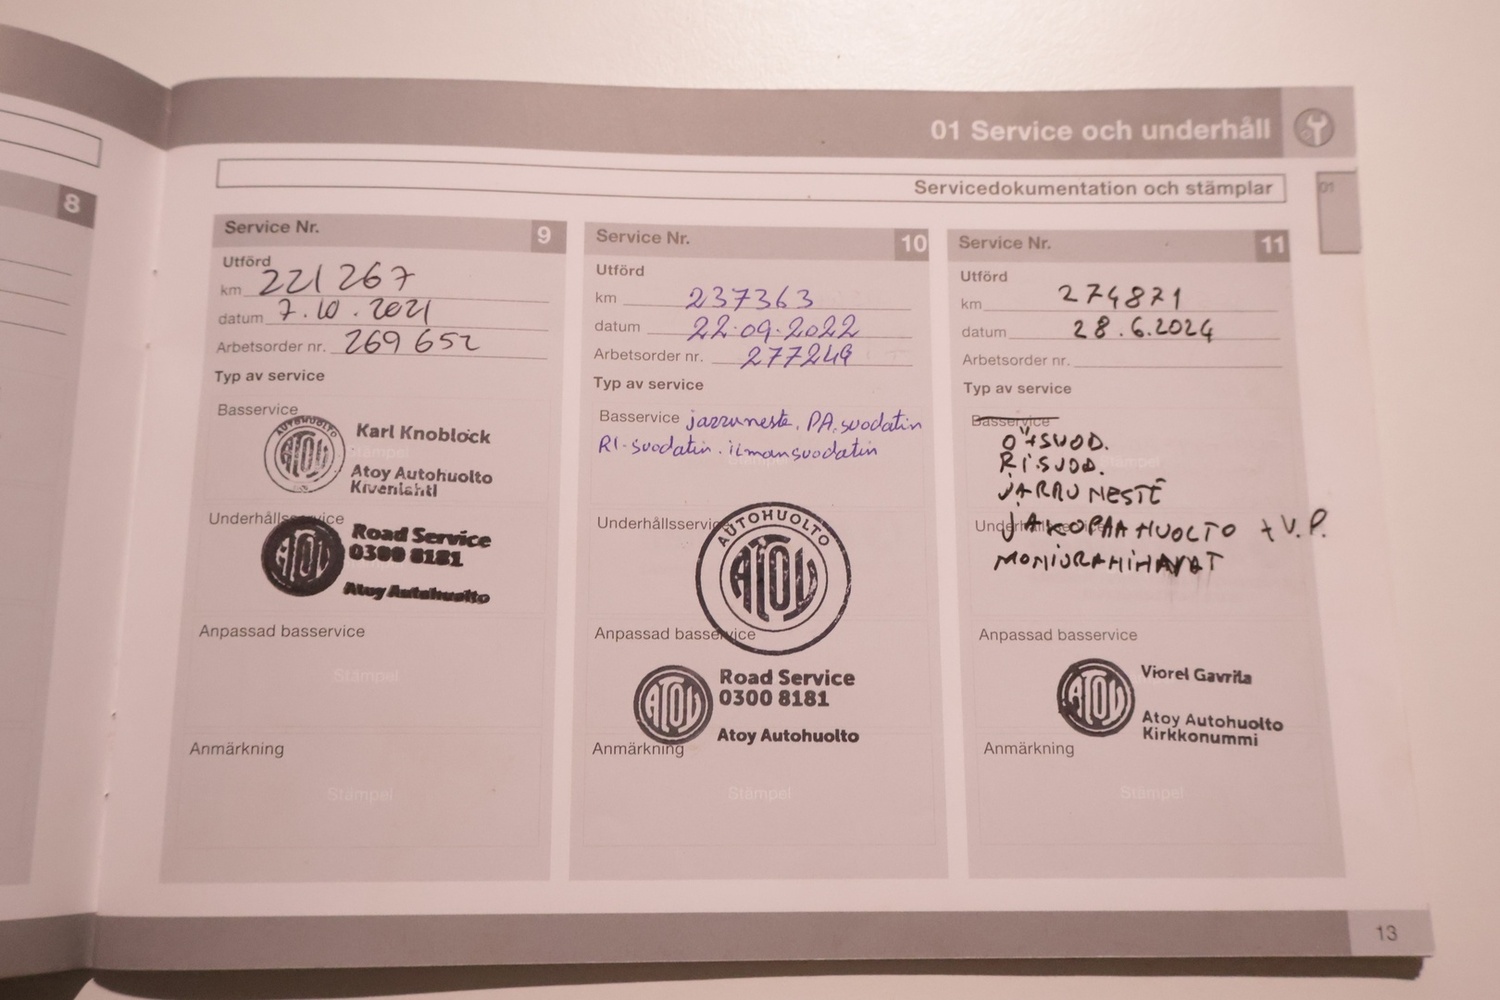 01 Service och underhåll
01
Servicedokumentation och stämplar
8
Service Nr. 9
Utförd
km 221 267
datum 7.10.2021
Arbetsorder nr. 269 652
Typ av service
Basservice
AUTOHUOLTO
ATOY
Karl Knoblock
Stämpel
Atoy Autohuolto
Kivenlahti
Underhållsservice
ATOY
Road Service
0300 8181
Atoy Autohuolto
Anpassad basservice
Stämpel
Anmärkning
Stämpel
Service Nr. 10
Utförd
km 237363
datum 22.09.2022
Arbetsorder nr. 277249
Typ av service
Basservice jarruneste, PA.suodatin
RI-suodatin. ilmansuodatin
Underhållsservice
AUTOHUOLTO
ATOY
Anpassad basservice
ATOY
Road Service
0300 8181
Atoy Autohuolto
Anmärkning
Stämpel
Service Nr. 11
Utförd
km 274871
datum 28.6.2024
Arbetsorder nr.
Typ av service
Basservice
Ö+SUOD.
RI.SUOD.
Stämpel
JARRUNESTE
Underhållsservice
JAKOPÄÄHUOLTO + V.P.
MONIURAHIHNAT
Anpassad basservice
ATOY
Viorel Gavrila
Atoy Autohuolto
Kirkkonummi
Anmärkning
Stämpel
13